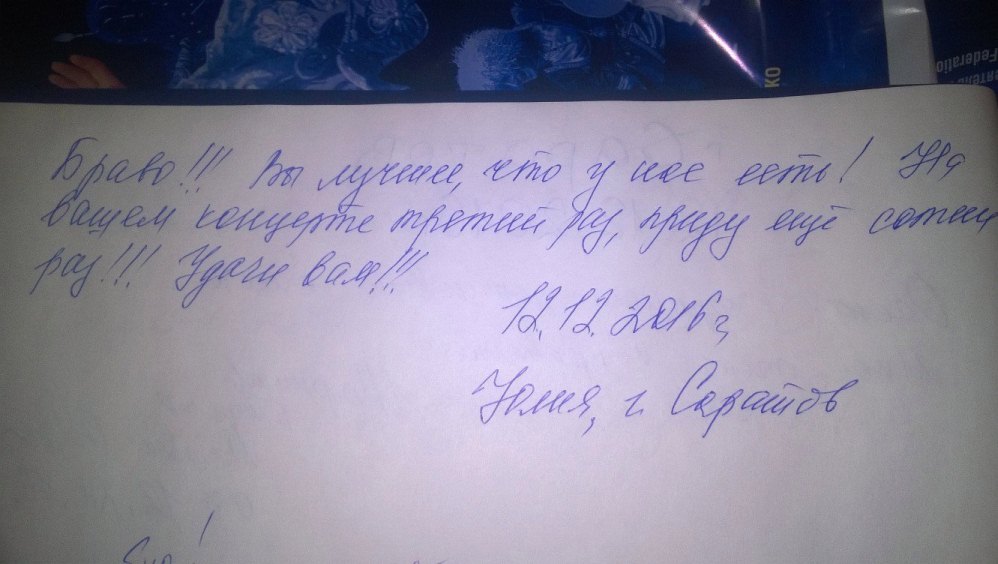 ко
Federatio
Браво!!! Вы лучшее, что у нас есть! На
вашем концерте третий раз, приду ещё сотни
раз!!! Удачи вам!!!
12.12.2016г,
Юлия, г. Саратов